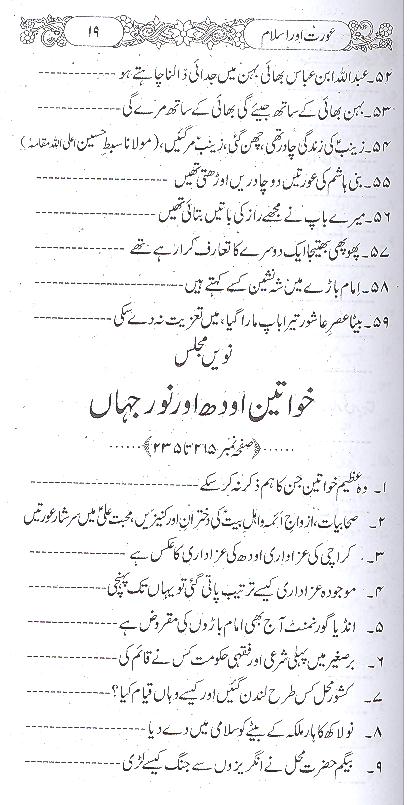 عورت اور اسلام ۱۹
۵۲۔ عبداللہ ابن عباس بھائی بہن میں جدائی ڈالنا چاہتے ہو
۵۳۔ بہن بھائی کے ساتھ جیئے گی بھائی کے ساتھ مرے گی
۵۴۔ زینبؑ کی زندگی چادر تھی، چھن گئی، زینبؑ مر گئیں، (مولانا سبطِ حسین اعلی اللہ مقامہٗ)
۵۵۔ بنی ہاشم کی عورتیں دو چادریں اوڑھتی تھیں
۵۶۔ میرے باپ نے مجھے راز کی باتیں بتائی تھیں
۵۷۔ پھوپھی بھتیجا ایک دوسرے کا تعارف کرا رہے تھے
۵۸۔ امام باڑے میں شہ نشین کسے کہتے ہیں
۵۹۔ بیٹا عصرِ عاشور تیرا باپ مارا گیا، میں تعزیت نہ دے سکی
نویں مجلس
خواتین اودھ اور نور جہاں
﴿صفحہ نمبر ۲۱۵ تا ۲۳۵﴾
۱۔ وہ عظیم خواتین جن کا ہم ذکر نہ کر سکے
۲۔ صحابیات، ازواجِ ائمہ و اہلِ بیتؑ کی دختران اور کنیزیں، محبتِ علیؑ میں سرشار عورتیں
۳۔ کراچی کی عزاداری اودھ کی عزاداری کا عکس ہے
۴۔ موجودہ عزاداری کیسے ترتیب پاتی گئی تو یہاں تک پہنچی
۵۔ انڈیا گورنمنٹ آج بھی امام باڑوں کی مقروض ہے
۶۔ برصغیر میں پہلی شرعی اور فقہی حکومت کس نے قائم کی
۷۔ کشور محل کس طرح لندن گئیں اور کیسے وہاں قیام کیا؟
۸۔ نولاکھ کا ہار ملکہ کے بیٹے کو سلامی میں دے دیا
۹۔ بیگم حضرت محل نے انگریزوں سے جنگ کیسے لڑی